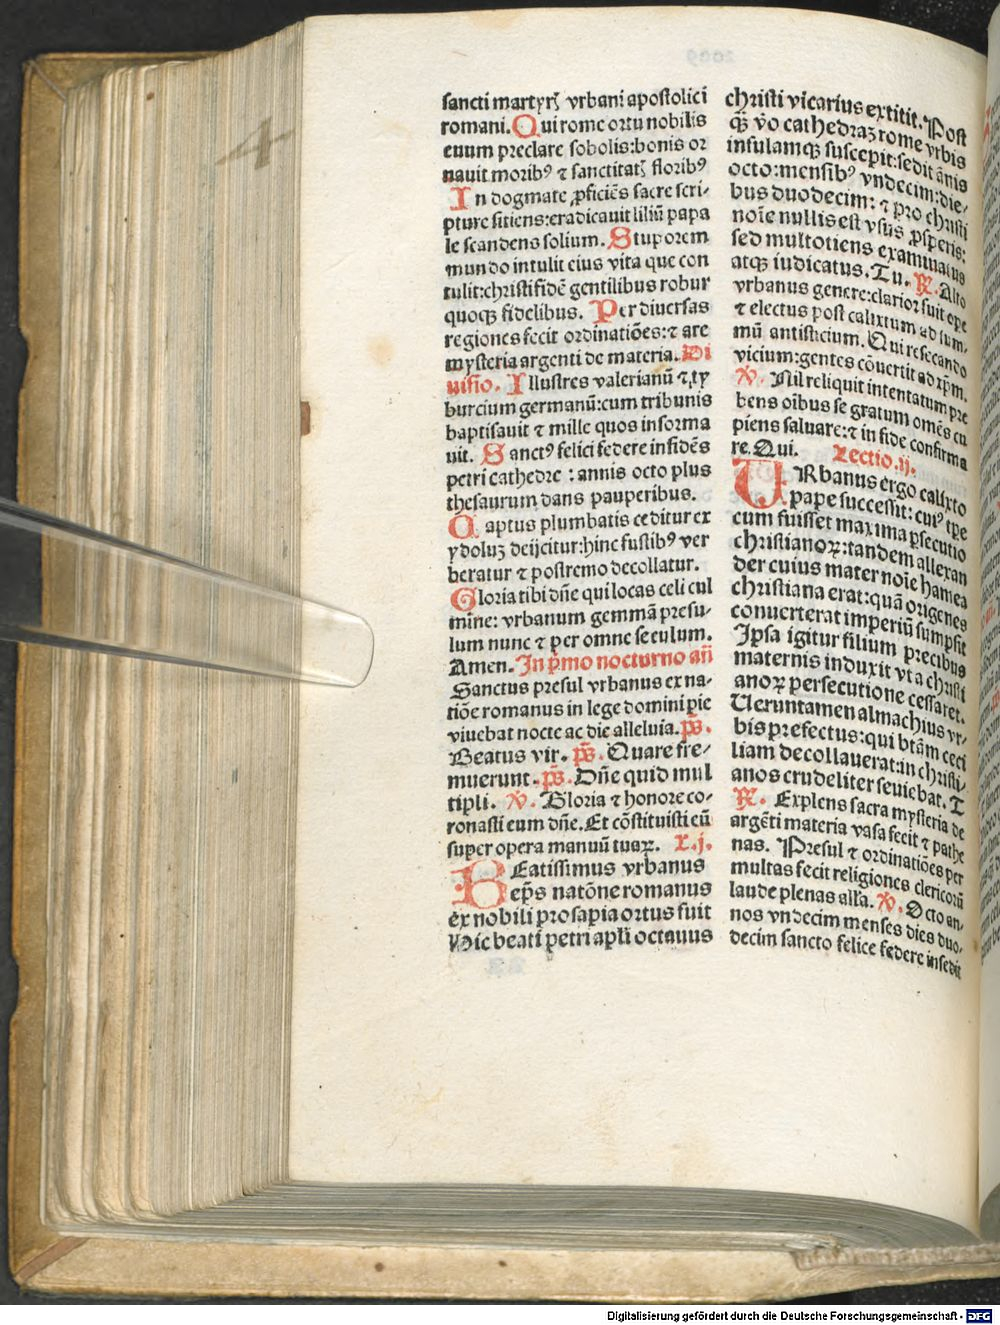 sancti martyrꝭ vrbani apostolici
romani. Qui rome ortu nobilis
euum preclare sobolis: bonis or
nauit moribꝰ ⁊ sanctitatꝭ floribꝰ
In dogmate ꝓficiēs sacre scri-
pture sitiens: eradicauit liliū papa
le scandens solium. Stuporem
mundo intulit eius vita que con
tulit: christi fidē gentilibus robur
quoqꝫ fidelibus. Per diuersas
regiones fecit ordinatiōes: ⁊ are
mysteria argenti de materia. Di
uisio. Illustres valerianū ⁊ ty
burcium germanū: cum tribunis
baptisauit ⁊ mille quos informa
uit. Sanctꝰ felici federe in fidēs
petri cathedre : annis octo plus
thesaurum dans pauperibus.
Captus plumbatis ceditur ex
ydoluꝫ deijcitur: hinc fustibꝰ ver
beratur ⁊ postremo decollatur.
Gloria tibi dñe qui locas celi cul
mine: vrbanum gemmā presu-
lum nunc ⁊ per omne seculum.
Amen. In pͥmo nocturno añ
Sanctus presul vrbanus ex na-
tiōe romanus in lege domini pie
viuebat nocte ac die alleluia. pš.
Beatus vir. pš. Quare fre-
muerunt. pš. Dñe quid mul
tipli. V̸. Gloria ⁊ honore co-
ronasti eum dñe. Et cōstituisti eū
super opera manuū tuaꝝ. L.j.
BEatissimus vrbanus
ep̄s natōne romanus
ex nobili prosapia ortus fuit
Hic beati petri apl̄i octauus
christi vicarius extitit. Post
qꝫ vo cathedraꝫ rome vrbis
insulamqꝫ suscepit: sedit ānis
octo: mensibꝰ vndecim: die-
bus duodecim: ⁊ pro christi
noīe nullis est vsus ꝓsperis:
sed multotiens examinatus
atqꝫ iudicatus. Tu. R̸. Alto
vrbanus genere: clarior fuit ope
⁊ electus post calixtum ad sum-
mū antisticium. Qui resecando
vicium: gentes cōuertit ad xp̄m.
V̸. Nil reliquit intentatum pre
bens oībus se gratum omēs cu
piens saluare: ⁊ in fide confirma
re. Qui. Lectio.ij.
URbanus ergo calixto
pape successit: cuiꝰ tpe
cum fuisset maxima ꝑsecutio
christianoꝝ: tandem allexan
der cuius mater noīe hamea
christiana erat: quā origenes
conuerterat imperiū sumpsit
Ipsa igitur filium precibus
maternis induxit vt a christi
anoꝝ persecutione cessaret.
Ueruntamen almachius vr-
bis prefectus: qui btām ceci
liam decollauerat: in christi-
anos crudeliter seuiebat. T
R̸. Explens sacra mysteria de
argēti materia vasa fecit ⁊ pathe
nas. Presul ⁊ ordinatiōes per
multas fecit religiones clericorū
laude plenas alľa. V̸. Octo an-
nos vndecim menses dies duo-
decim sancto felice federe insedit
Digitalisierung gefördert durch die Deutsche Forschungsgemeinschaft - DFG